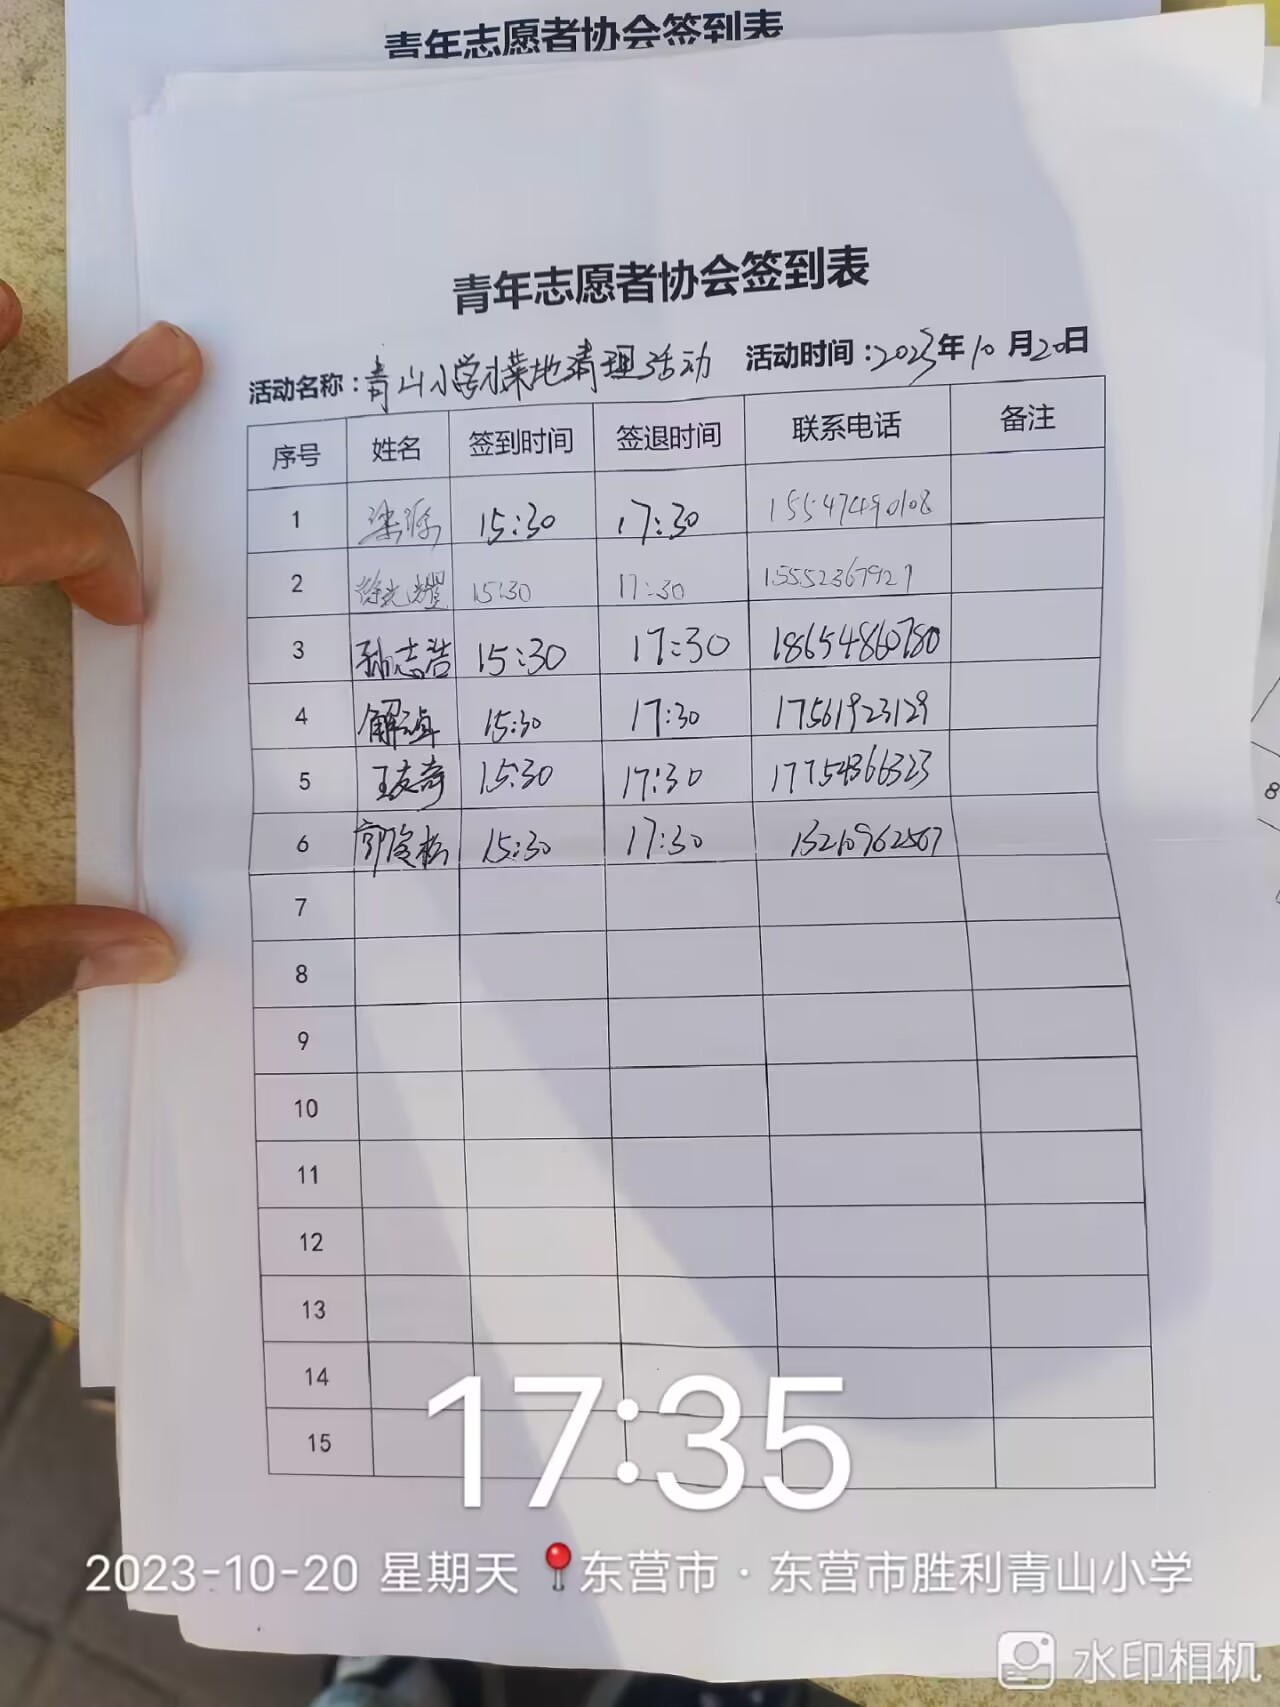 青年志愿者协会签到表
青年志愿者协会签到表
活动名称：青山小学小菜地清理活动 活动时间：2023年10月20日
序号 姓名 签到时间 签退时间 联系电话 备注
1 15:30 17:30 15547490108
2 徐光耀 15:30 17:30 15552367927
3 孙志浩 15:30 17:30 18654860780
4 解 15:30 17:30 17561923129
5 王友奇 15:30 17:30 17754366323
6 郭俊松 15:30 17:30 13210962567
7
8
9
10
11
12
13
14
15
17:35
2023-10-20 星期天 东营市·东营市胜利青山小学
水印相机
8